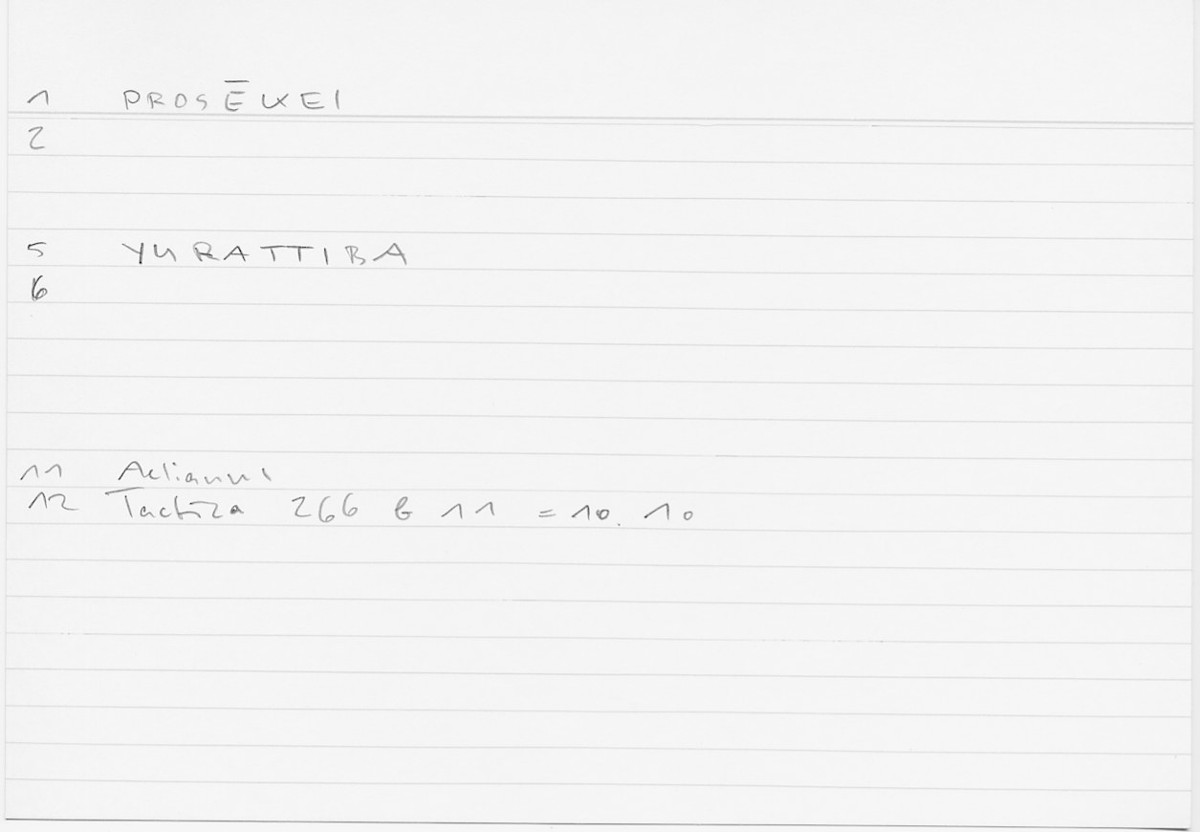 1 PROSĒKEI
2
5 YURATTIBA
6
11 Aelianus
12 Tactica 266 b 11 = 10. 10